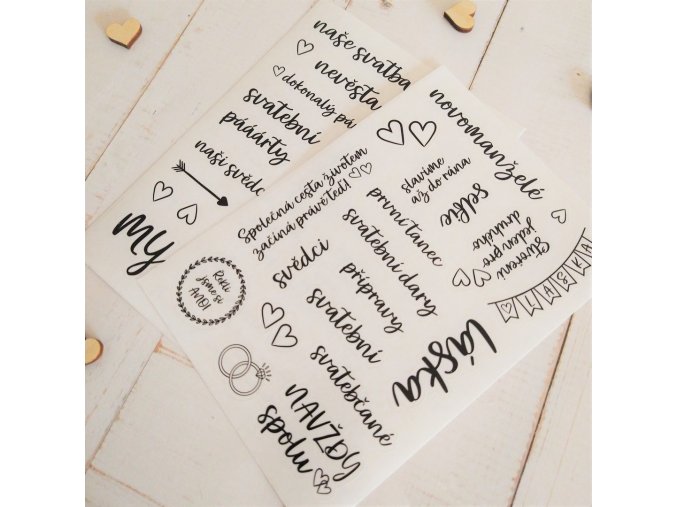 naše svatba
nevěsta
dokonalý pá
svatební
pááárty
naši svědc
MY
novomanželé
slavíme
až do rána
selfie
Stvořeni
jeden pro
druhého
LÁSKA
Společná cesta životem
začíná právě teď!
první tanec
svatební dary
přípravy
svědci
svatební
svatebčané
láska
Řekli
jsme si
ANO!
NAVŽDY
spolu